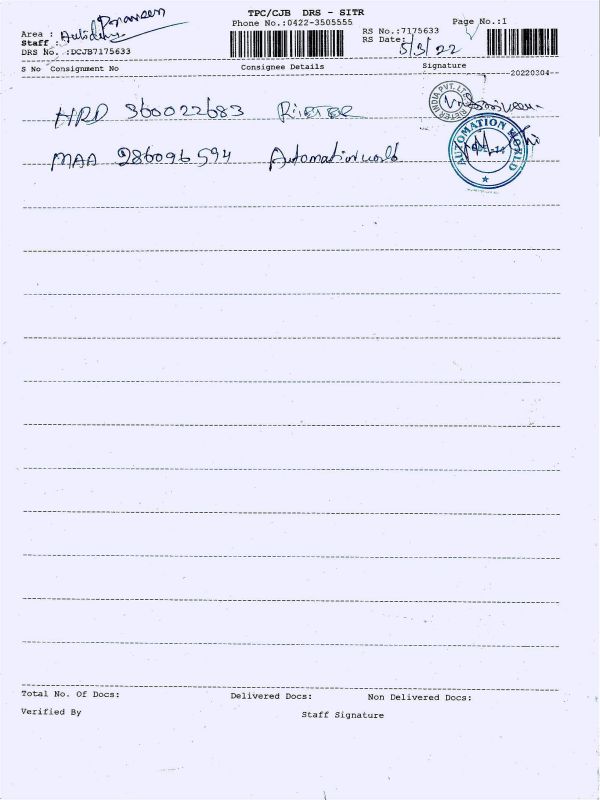 TPC/CJB DRS - SITR
Phone No.:0422-3505555
Page No.:1
Praveen
Area :
Staff :
DRS No. :DCJB7175633
RS No.:7175633
RS Date: 5/3/22
S No Consignment No Consignee Details Signature
20220304
HRD 360022683 RIETER
RIETER INDIA PVT. LTD
MAA 286096594 Automation world
AUTOMATION WORLD
Total No. Of Docs: Delivered Docs: Non Delivered Docs:
Verified By Staff Signature